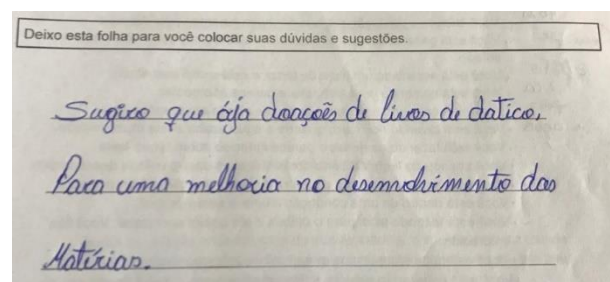 Deixo esta folha para você colocar suas dúvidas e sugestões.
Sugiro que ája doaçoẽs de livros de datico,
Para uma melhoria no desemvolvimento das
Matírias.